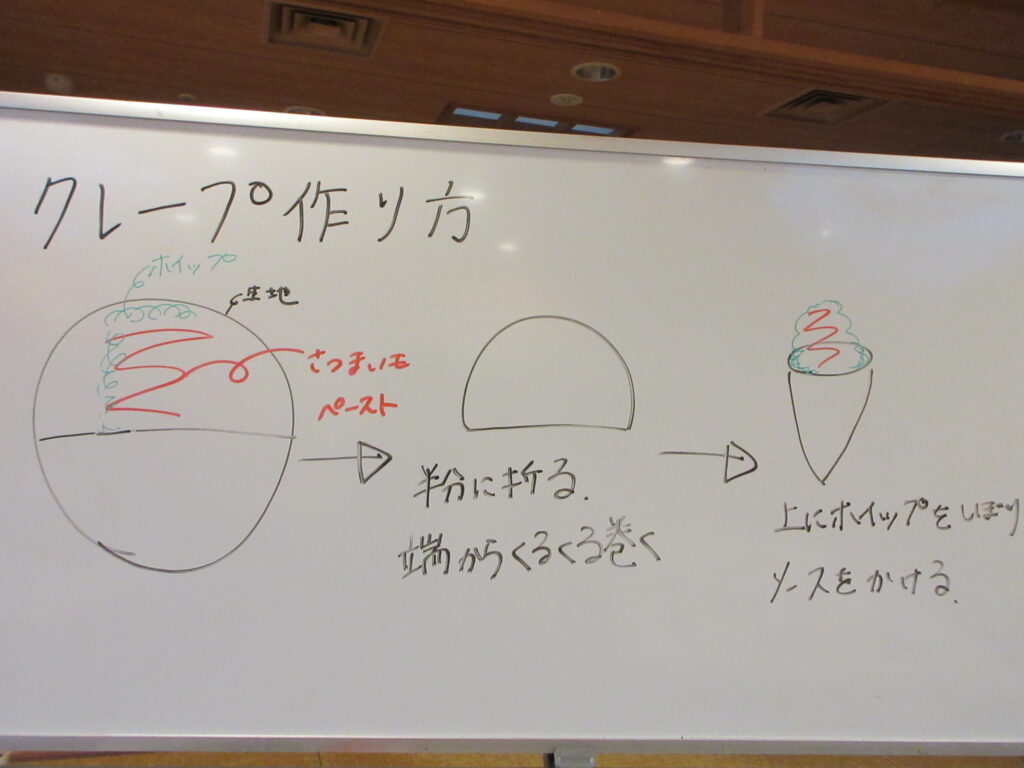 クレープ作り方
ホイップ
生地
さつまいも
ペースト
半分に折る.
端からくるくる巻く
上にホイップをしぼり
ソースをかける.